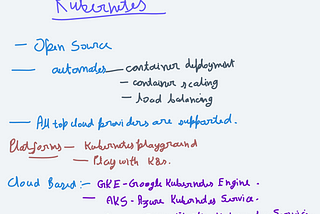 Kubernetes
- Open Source
- automates - container deployment
- container scaling
- load balancing
- All top cloud providers are supported.
Platforms - Kubernetes playground
- Play with K8s.
Cloud Based :- GKE - Google Kubernetes Engine.
- AKS - Azure Kubernetes Service.